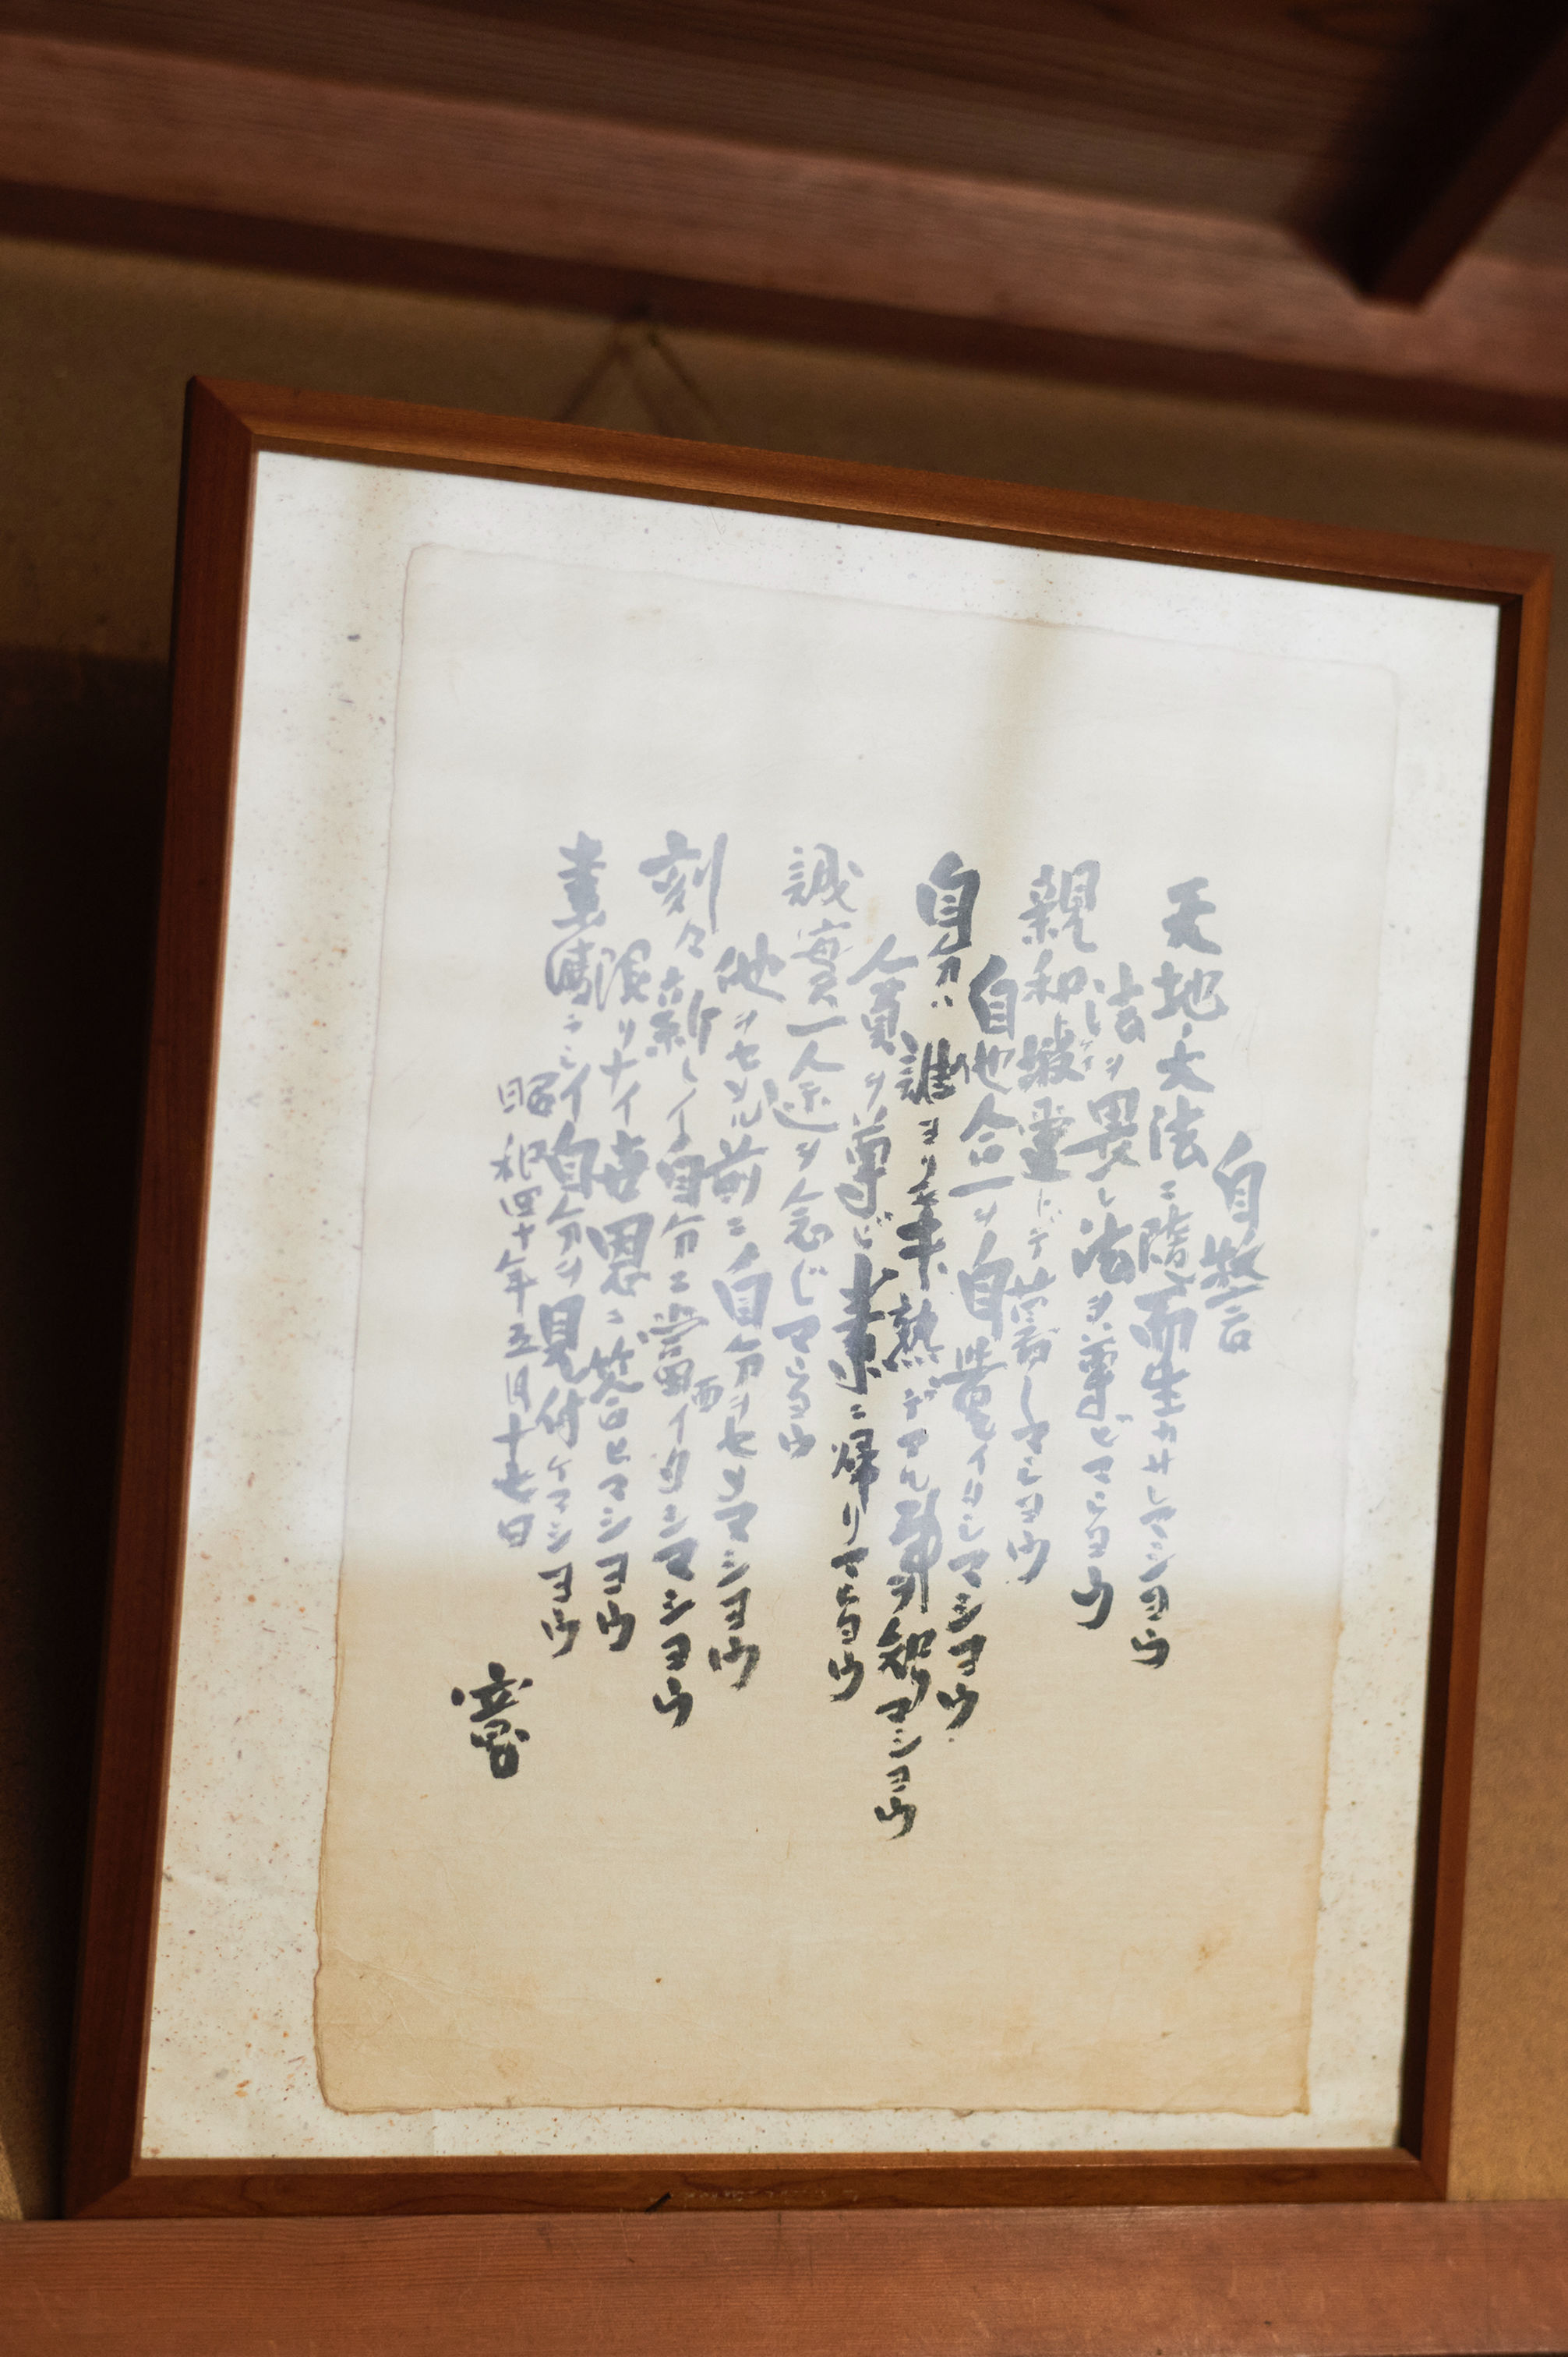 自警
天地ノ大法ニ随テ而生カサレマシヨウ
法ヲ畏レ法ヲ尊ビマシヨウ
親和シテ暮シマシヨウ
自他合一ヲ自覚イタシマシヨウ
自分ハ誰ヨリ未熟デアル事ヲ知リマシヨウ
人員ヲ尊ビ素ニ帰リマシヨウ
誠実一途ヲ念ジマシヨウ
他ヲセメル前ニ自分ヲセメマシヨウ
刻々新シイ自分ニ當面イタシマシヨウ
限リナイ喜ニ答ヒマシヨウ
シイ自分ヲ見付ケマシヨウ
昭和四十年五月十七日